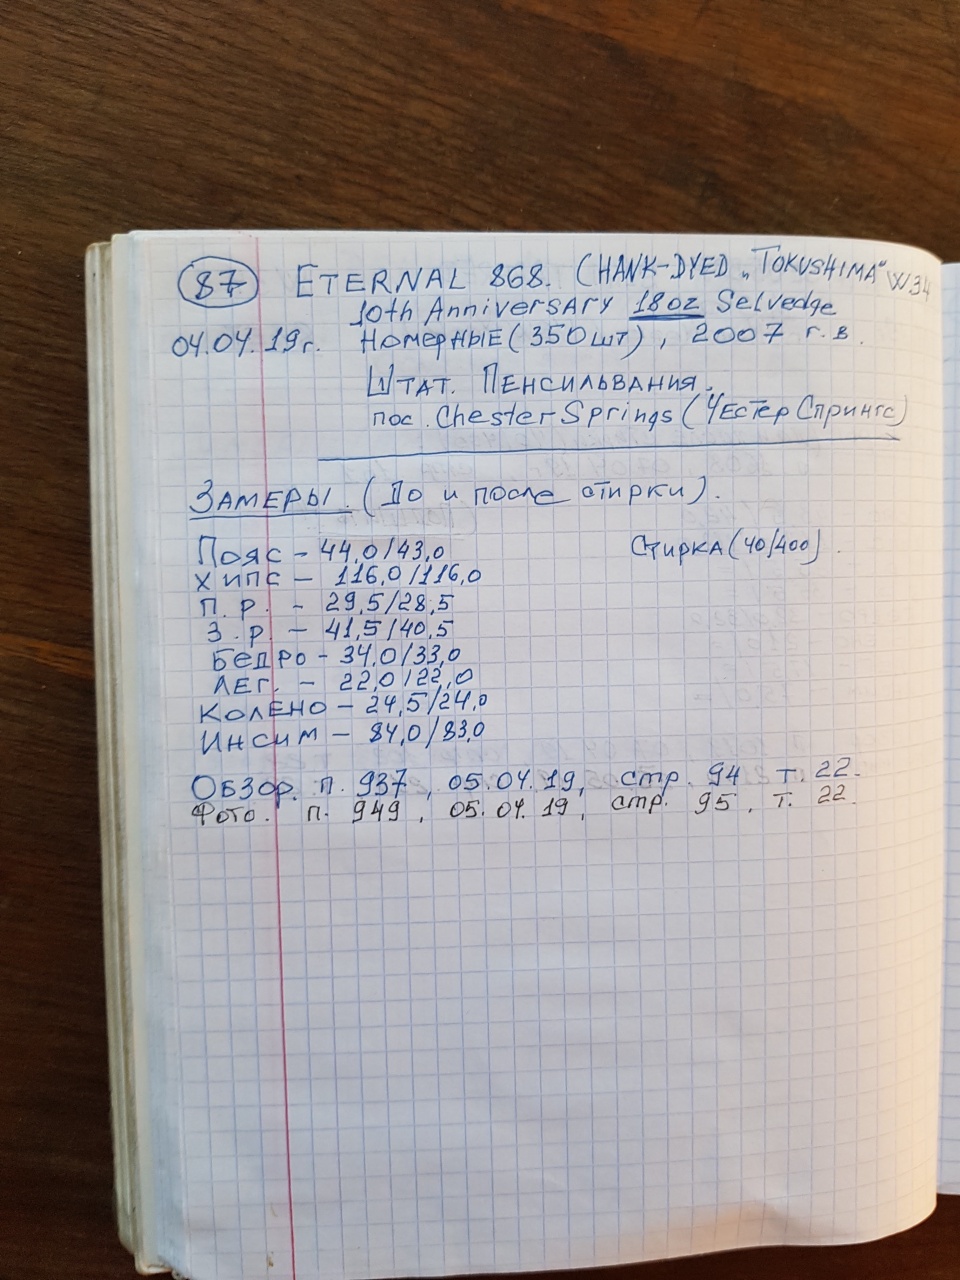 87 ETERNAL 868. (HANK-DYED „TOKUSHIMA" W34
10th Anniversary 18oz Selvedge
04.04.19г. НОМЕРНЫЕ (350шт), 2007 г.в.
ШТАТ. ПЕНСИЛЬВАНИЯ.
пос. Chester Springs (Честер Спрингс)
ЗАМЕРЫ. (До и после стирки).
Пояс – 44,0/43,0 Стирка (40/400).
ХИПС – 116,0/116,0
П.Р. – 29,5/28,5
З.Р. – 41,5/40,5
Бедро – 34,0/33,0
ЛЕГ. – 22,0/22,0
КОЛЕНО – 24,5/24,0
ИНСИМ – 84,0/83,0
ОБЗОР. п. 937, 05.04.19, стр. 94 т. 22.
Фото. п. 949, 05.04.19, стр. 95, т. 22.